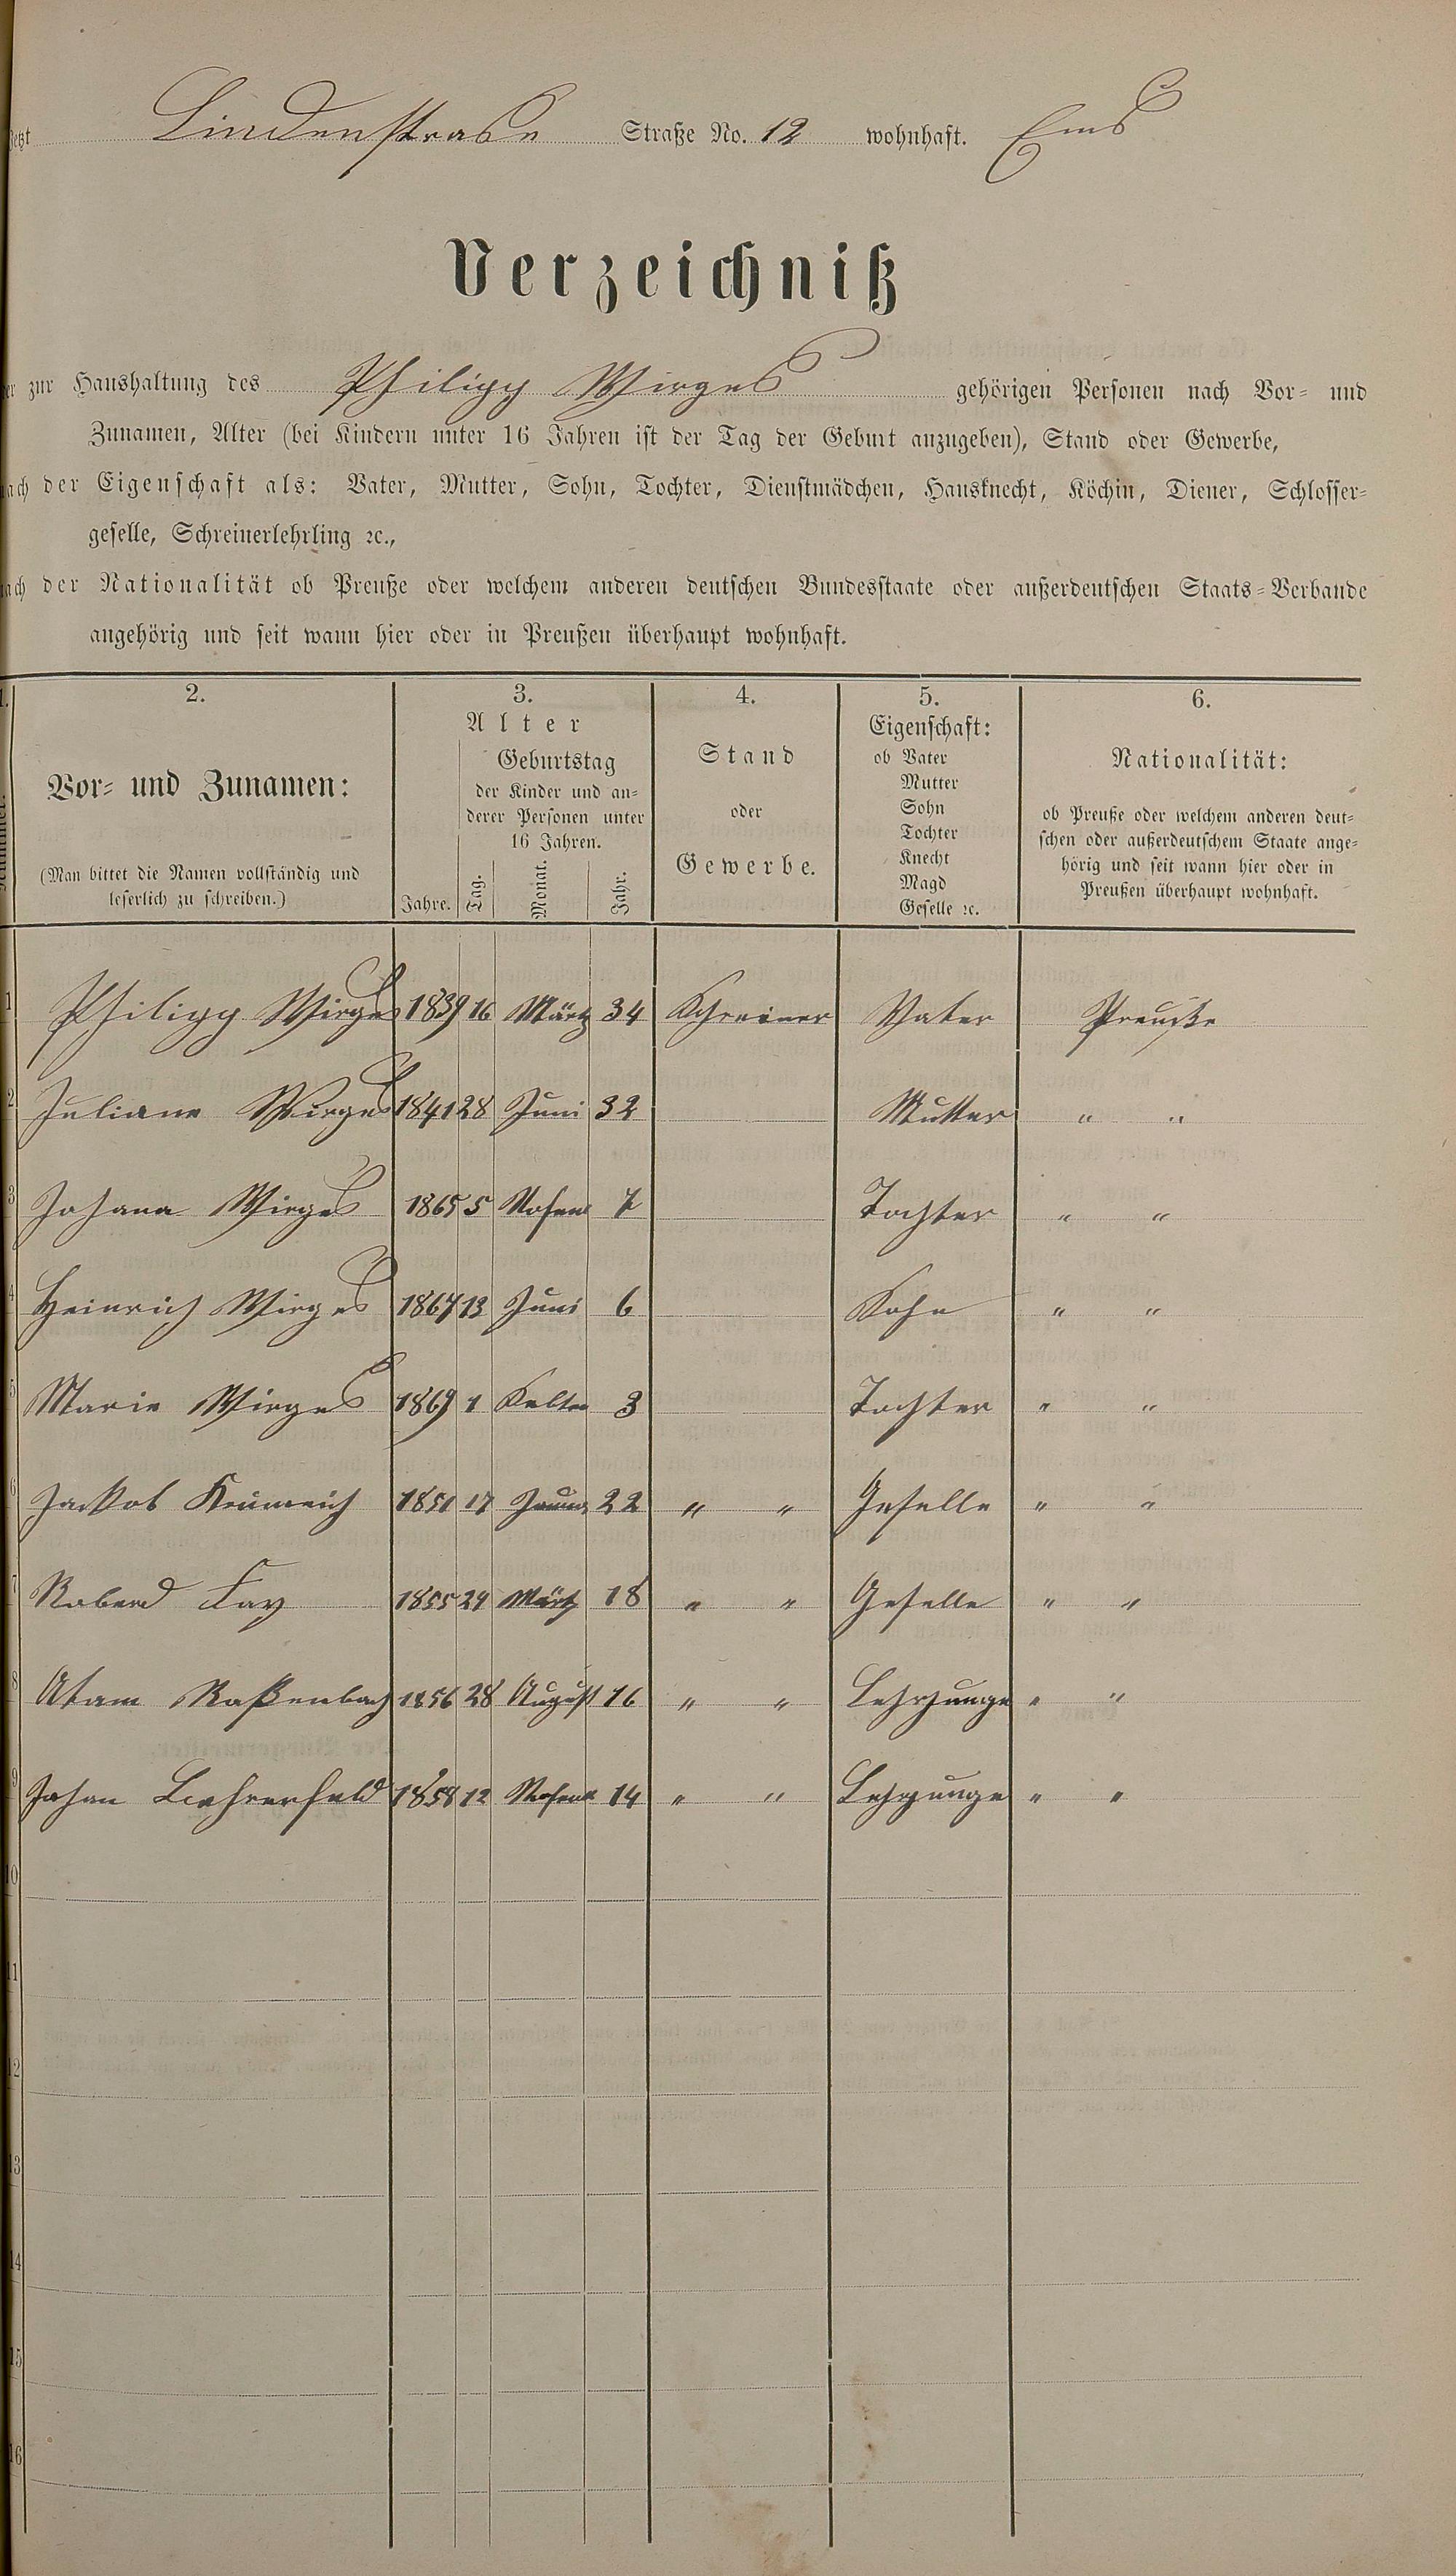 Jetzt Lindenstrase Straße No. 12 wohnhaft. Ems
Verzeichniß
der zur Haushaltung des Philipp Wirges gehörigen Personen nach Vor- und
Zunamen, Alter (bei Kindern unter 16 Jahren ist der Tag der Geburt anzugeben), Stand oder Gewerbe,
nach der Eigenschaft als: Vater, Mutter, Sohn, Tochter, Dienstmädchen, Hausknecht, Köchin, Diener, Schlosser-
geselle, Schreinerlehrling ꝛc.,
nach der Nationalität ob Preuße oder welchem anderen deutschen Bundesstaate oder außerdeutschen Staats-Verbande
angehörig und seit wann hier oder in Preußen überhaupt wohnhaft.
1. 2. 3. 4. 5. 6.
Nummer.
Vor- und Zunamen:
(Man bittet die Namen vollständig und
leserlich zu schreiben.)
Alter
Geburtstag
der Kinder und an-
derer Personen unter
16 Jahren.
Jahre. Tag. Monat. Jahr.
Stand
oder
Gewerbe.
Eigenschaft:
ob Vater
Mutter
Sohn
Tochter
Knecht
Magd
Geselle ꝛc.
Nationalität:
ob Preuße oder welchem anderen deut-
schen oder außerdeutschem Staate ange-
hörig und seit wann hier oder in
Preußen überhaupt wohnhaft.
1 Philipp Wirges 1839 16 Märtz 34 Schreiner Vater Preuße
2 Juliane Wirges 1841 28 Juni 32 Mutter " "
3 Johana Wirges 1865 5 Nofem 7 Tochter " "
4 Heinrich Wirges 1867 13 Juni 6 Sohn " "
5 Marie Wirges 1869 1 3 Tochter " "
6 Jackob 1851 17 22 " " Geselle " "
7 Roberd Fay 1855 24 Märtz 18 " " Geselle " "
8 Atam Raßenbach 1856 28 August 16 " " Lehrjunge " "
9 Johan 1858 12 Nofem 14 " " Lehrjunge " "
10
11
12
13
14
15
16